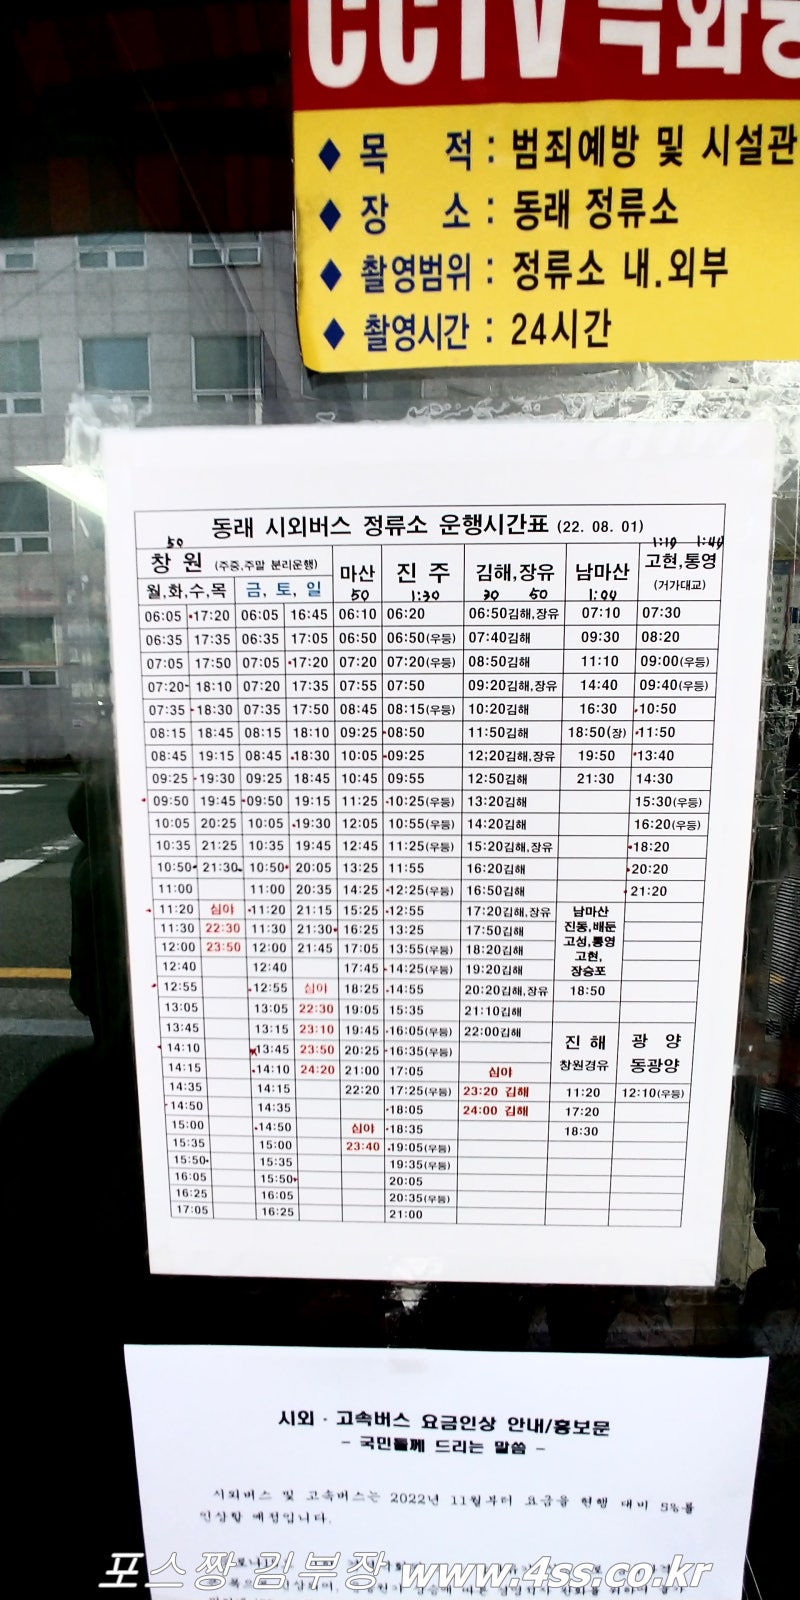 CCTV 녹화중
◆ 목 적 : 범죄예방 및 시설관
◆ 장 소 : 동래 정류소
◆ 촬영범위 : 정류소 내.외부
◆ 촬영시간 : 24시간
동래 시외버스 정류소 운행시간표 (22. 08. 01)
50 1:10 1:40
창 원 (주중,주말 분리운행) 마산 진 주 김해,장유 남마산 고현,통영
월,화,수,목 금, 토, 일 50 1:30 30 50 1:00 (거가대교)
06:05 17:20 06:05 16:45 06:10 06:20 06:50김해,장유 07:10 07:30
06:35 17:35 06:35 17:05 06:50 06:50(우등) 07:40김해 09:30 08:20
07:05 17:50 07:05 17:20 07:20 07:20(우등) 08:50김해 11:10 09:00(우등)
07:20 18:10 07:20 17:35 07:55 07:50 09:20김해,장유 14:40 09:40(우등)
07:35 18:30 07:35 17:50 08:45 08:15(우등) 10:20김해 16:30 10:50
08:15 18:45 08:15 18:10 09:25 08:50 11:50김해 18:50(장) 11:50
08:45 19:15 08:45 18:30 10:05 09:25 12;20김해,장유 19:50 13:40
09:25 19:30 09:25 18:45 10:45 09:55 12:50김해 21:30 14:30
09:50 19:45 09:50 19:15 11:25 10:25(우등) 13:20김해 15:30(우등)
10:05 20:25 10:05 19:30 12:05 10:55(우등) 14:20김해 16:20(우등)
10:35 21:25 10:35 19:45 12:45 11:25(우등) 15:20김해,장유 18:20
10:50 21:30 10:50 20:05 13:25 11:55 16:20김해 20:20
11:00 11:00 20:35 14:25 12:25(우등) 16:50김해 21:20
11:20 심야 11:20 21:15 15:25 12:55 17:20김해,장유 남마산
11:30 22:30 11:30 21:30 16:25 13:25 17:50김해 진동,배둔
12:00 23:50 12:00 21:45 17:05 13:55(우등) 18:20김해 고성,통영
12:40 12:40 17:45 14:25(우등) 19:20김해 고현,
장승포
12:55 12:55 심야 18:25 14:55 20:20김해,장유 18:50
13:05 13:05 22:30 19:05 15:35 21:10김해
13:45 13:15 23:10 19:45 16:05(우등) 22:00김해 진 해 광 양
14:10 13:45 23:50 20:25 16:35(우등) 창원경유 동광양
14:15 14:10 24:20 21:00 17:05 심야
14:35 14:15 22:20 17:25(우등) 23:20 김해 11:20 12:10(우등)
14:50 14:35 18:05 24:00 김해 17:20
15:00 14:50 심야 18:35 18:30
15:35 15:00 23:40 19:05(우등)
15:50 15:35 19:35(우등)
16:05 15:50 20:05
16:25 16:05 20:35(우등)
17:05 16:25 21:00
시외 · 고속버스 요금인상 안내/홍보문
- 국민들께 드리는 말씀 -
시외버스 및 고속버스는 2022년 11월부터 요금을 현행 대비 5%를
인상할 예정입니다.
포스짱 김부장 www.4ss.co.kr